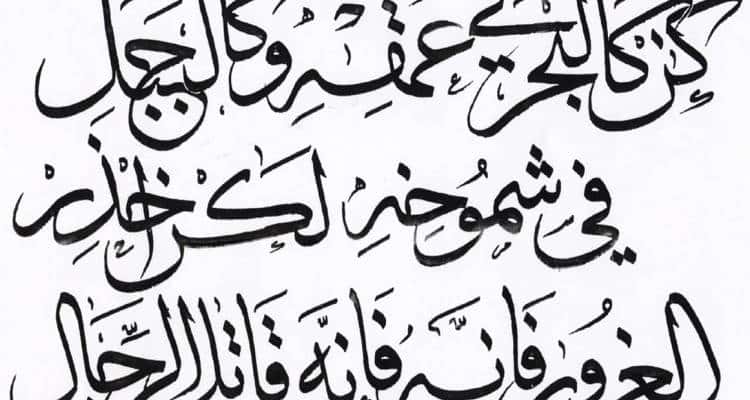 كن كالبحر في عمقه وكالجبل
في شموخه لكن احذر
الغرور فإنه فإنه قاتل الرجال